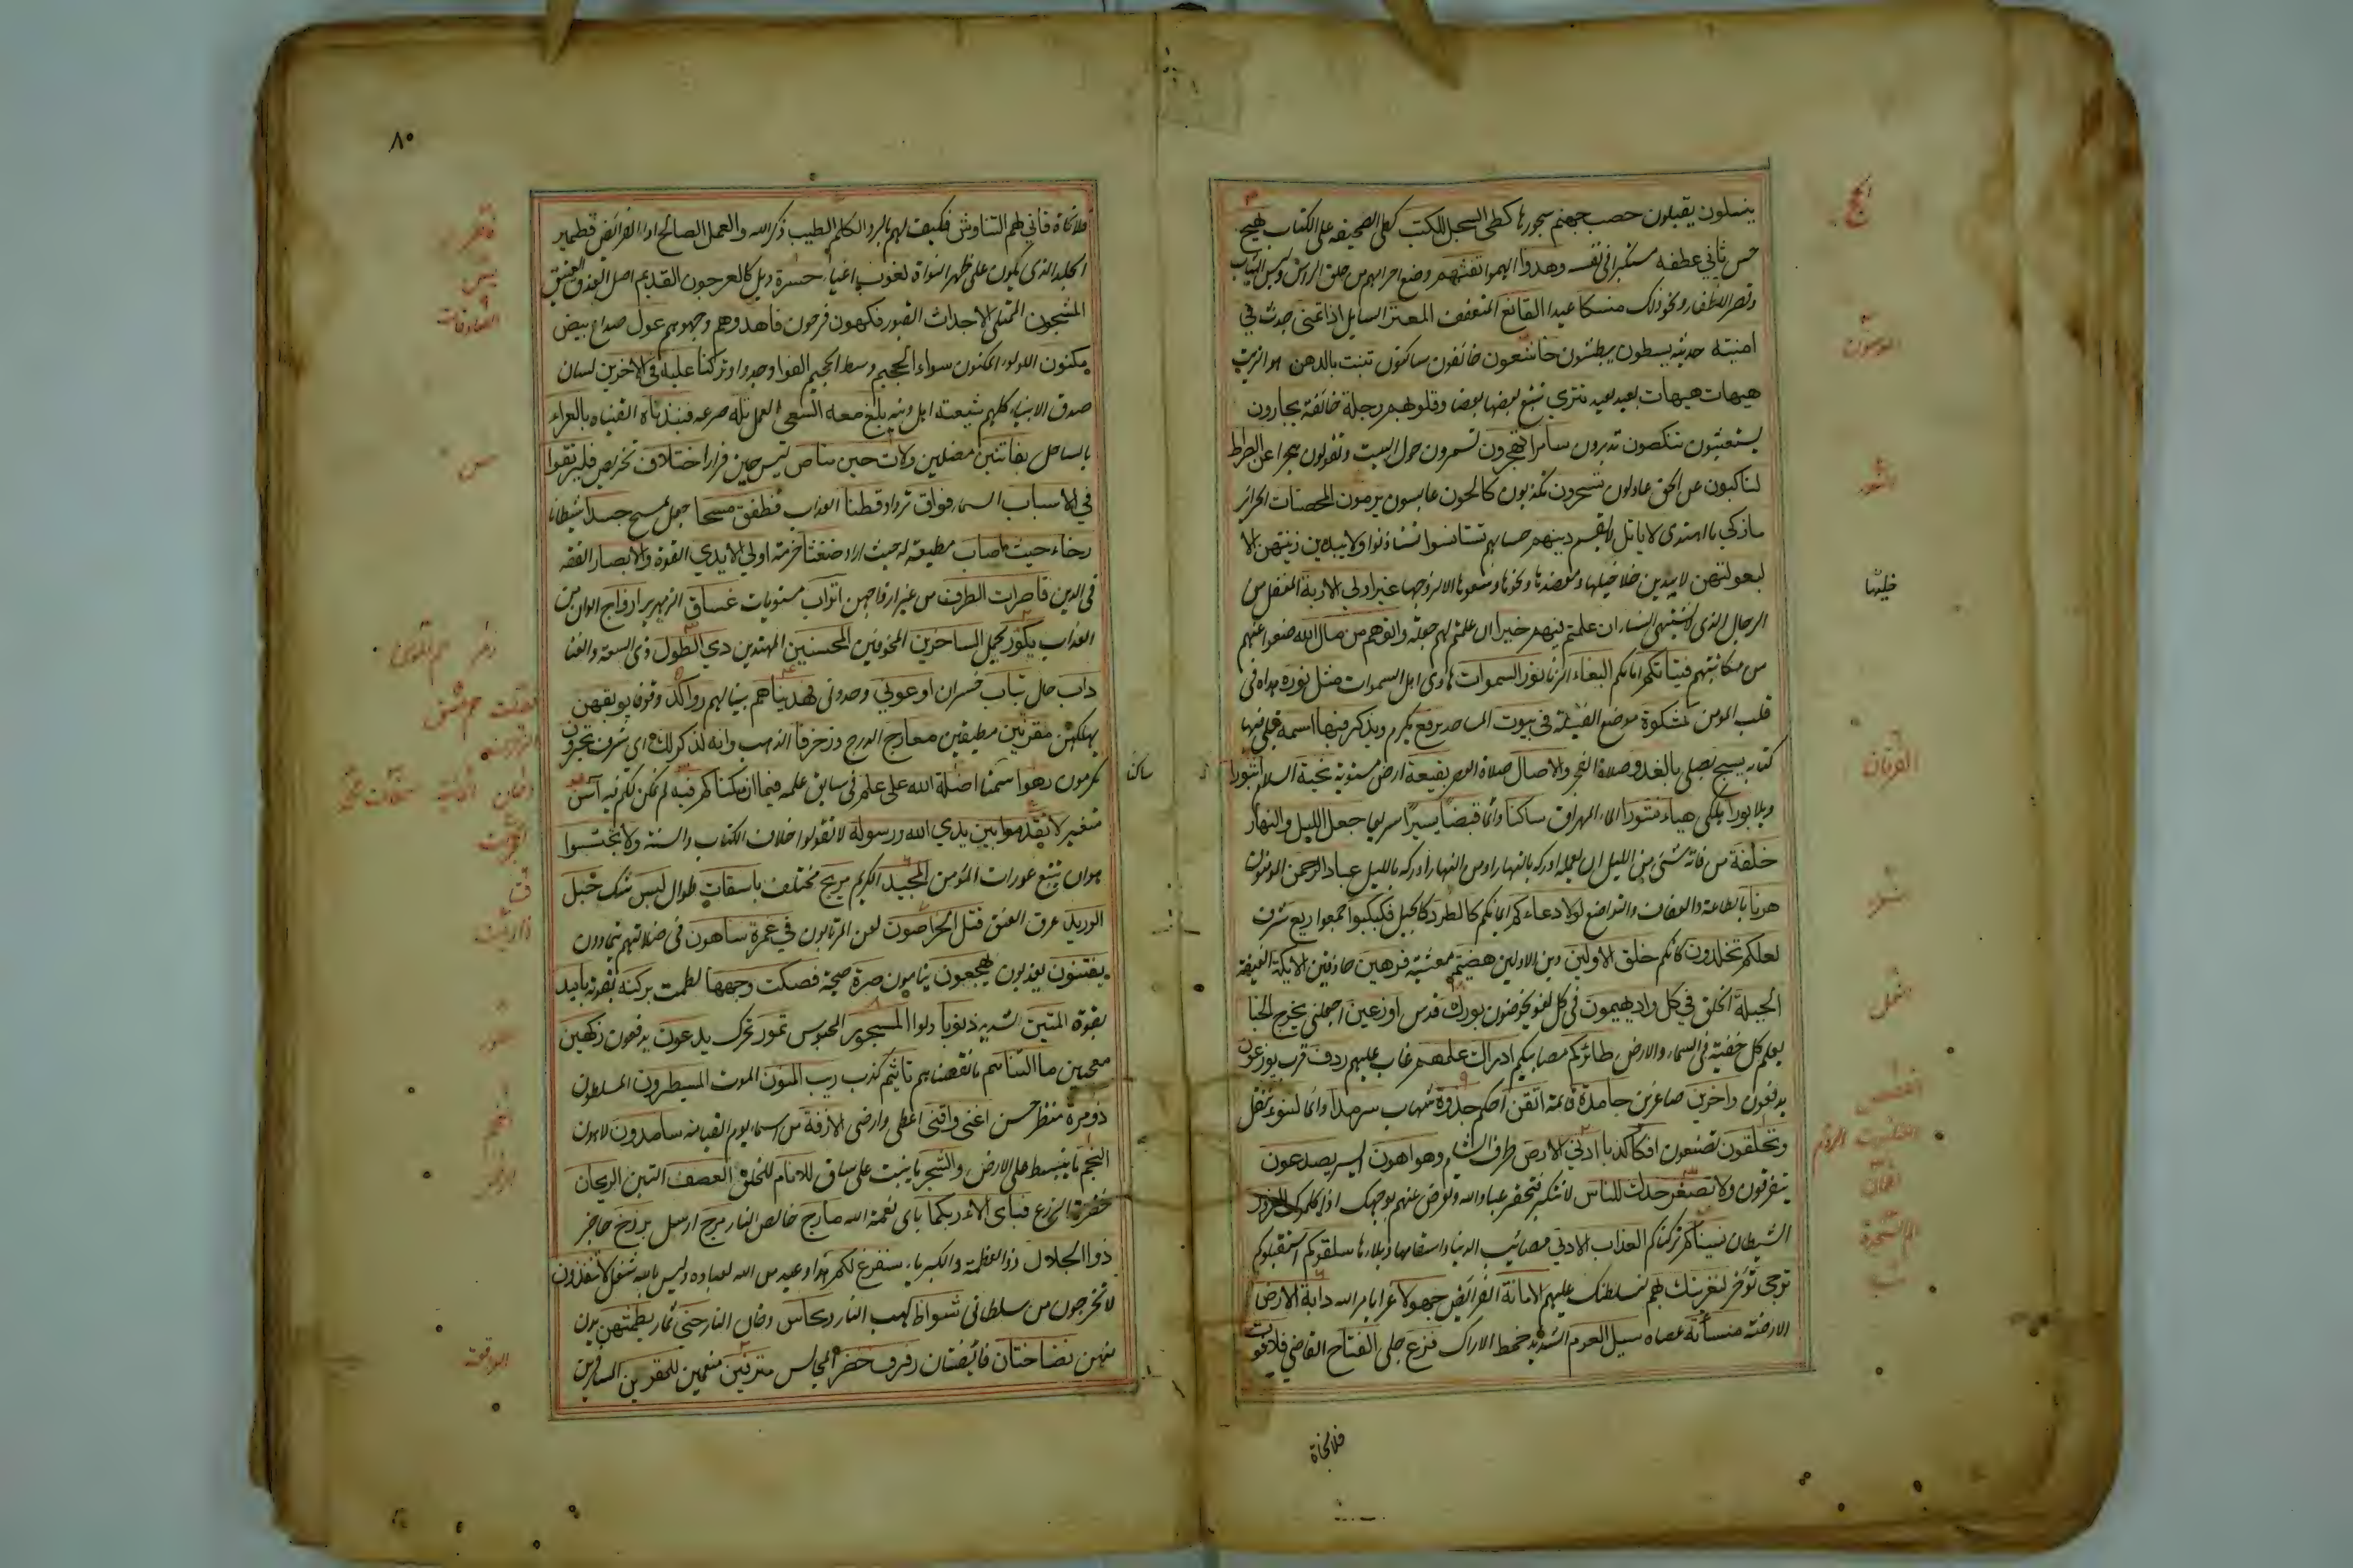 ينسلون يقبلون حصب جهنم سجورها كطى السجل للكتب كطى الصحيفه على الكتاب بهيج
حسن ثاني عطفه مستكبرا فى نفسه وهدوا الهموا تفثهم وضع احرامهم من حلق الراس ولبس الثياب
وقص الاظفار ونحو ذلك منسكا عيدا القانع المتعفف المعتر السايل اذا تمنى حدث في
امنيته حديثه يسطون يبطشون خاشعون خائفون ساكنون تنبت بالدهن هو الزيت
هيهات هيهات بعيد بعيد تترى تتبع بعضها بعضا وقلوبهم وجلة خائفة يجارون
يستغيثون تنكصون تدبرون سامرا تهجرون تسمرون حول البيت وتقولون هجرا عن الصراط
لناكبون عن الحق عادلون تسحرون تكذبون كالحون عابسون يرمون المحصنات الحرائر
ما زكى ما اهتدى لا ياتل لا يقسم دينهم حسابهم تستانسوا تستاذنوا ولا يبدين زينتهن الا
لبعولتهن لا يبدين خلاخيلها ومعضدها ونحرها وشعرها الا لزوجها غير اولي الاربة المغفل من
الرجال الذى لا يشتهى النساء ان علمتم فيهم خيرا ان علمتم لهم حيلة واتوهم من مال الله ضعوا عنهم
من مكاتبتهم فتياتكم اماءكم البغاء الزنا نور السموات هادى اهل السموات مثل نوره هداه فى
قلب المومن كمشكوة موضع الفتيلة في بيوت المساجد ترفع تكرم ويذكر فيها اسمه يتلى فيها
كتابه يسبح يصلى بالغدو صلاة الفجر والاصال صلاة العصر بقيعة ارض مستوية تحية السلام ثبورا
ويلا بورا هلكى هباء منثورا الماء المهراق ساكنا دائما قبضا يسيرا سريعا جعل الليل والنهار
خلفة من فاته شئ من الليل ان يعمله ادركه بالنهار او من النهار ادركه بالليل عباد الرحمن المومنون
هونا بالطاعة والعفاف والتواضع لولا دعاءكم ايمانكم كالطود كالجبل فكبكبوا جمعوا ريع شرف
لعلكم تخلدون كانكم خلق الاولين دين الاولين هضيم معشبة فرهين حاذقين الايكة الغيضة
الجبلة الخلق في كل واد يهيمون فى كل لغو يخوضون بورك قدس اوزعني اجعلني يخرج الخبا
يعلم كل خفية فى السماء والارض طائركم مصائبكم ادراك علمهم غاب علمهم ردف قرب يوزعون
يدفعون داخرين صاغرين جامدة قائمة اتقن احكم جذوة شهاب سرمدا دائما لتنوء تثقل
وتخلقون تصنعون افكا كذبا ادنى الارض طرف الشام وهو اهون ايسر يصدعون
يتفرقون ولا تصعر خدك للناس لا تتكبر فتحقر عباد الله وتعرض عنهم بوجهك اذا كلموك الغرور
الشيطان نسيناكم تركناكم العذاب الادنى مصائب الدنيا واسقامها وبلاءها سلقوكم استقبلوكم
ترجى تؤخر لنغرينك بهم لنسلطنك عليهم الامانة الفرائض جهولا غرا بامر الله دابة الارض
الارضة منسأته عصاه سيل العرم الشديد خمط الاراك فزع جلى الفتاح القاضي فلا فوت
فلا نجاة
الحج
المومنون
النور
الفرقان
شعراء
نمل
القصص
العنكبوت الروم
لقمان
الم السجدة
٨٠
فلا نجاة فاني لهم التناوش فكيف لهم بالرد الكلم الطيب ذكر الله والعمل الصالح اداء الفرائض قطمير
الجلد الذى يكون على ظهر النواة لغوب اعياء حسرة ويل كالعرجون القديم اصل العذق العتيق
المشحون الممتلى الاجداث القبور فكهون فرحون فاهدوهم وجهوهم غول صداع بيض
مكنون اللولو المكنون سواء الجحيم وسط الجحيم الفوا وجدوا وتركنا عليه فى الاخرين لسان
صدق الانبياء كلهم شيعته اهل دينه بلغ معه السعى العمل تله صرعه فنبذناه القيناه بالعراء
بالساحل بفاتنين مضلين ولات حين مناص ليس حين فرار اختلاق تخريص فليرتقوا
في الاسباب السماء فواق ترداد قطنا العذاب فطفق مسحا جعل يمسح جسدا شيطانا
رخاء حيث اصاب مطيعة له حيث اراد ضغثا حزمة اولي الايدي القوة والابصار الفقه
فى الدين قاصرات الطرف من غير ازواجهن اتراب مستويات غساق الزمهرير ازواج الوان من
العذاب يكور يحمل الساخرين المخوفين المحسنين المهتدين ذي الطول ذى السعة والغنا
داب حال تباب خسران ادعوني وحدونى فهديناهم بينا لهم رواكد وقوفا يوبقهن
يهلكهن مقرنين مطيقين معارج الدرج وزخرفا الذهب وانه لذكر لك اى شرف تحبرون
تكرمون رهوا سمتا اضله الله على علم فى سابق علمه فيما ان مكناكم فيه لم نمكنكم فيه آسن
متغير لا تقدموا بين يدي الله ورسوله لا تقولوا خلاف الكتاب والسنة ولا تجسسوا
هو ان يتبع عورات المؤمن المجيد الكريم مريج مختلف باسقات طوال لبس شك حبل
الوريد عرق العنق قتل الخراصون لعن المرتابون في غمرة ساهون فى ضلالتهم يتمادون
يفتنون يعذبون يهجعون ينامون صرة صيحة فصكت وجهها لطمت بركنه بقوته بأيد
بقوة المتين الشديد ذنوبا دلوا المسجور المحبوس تمور تحرك يدعون يدفعون فكهين
معجبين ما التناهم ما نقصناهم تاثيم كذب ريب المنون الموت المسيطرون المسلطون
ذو مرة منظر حسن اغنى واقنى اعطى وارضى الازفة من اسماء يوم القيامة سامدون لاهون
النجم ما ينبسط على الارض والشجر ما ينبت على ساق للانام للخلق العصف التبن الريحان
خضرة الزرع فباى الاء ربكما باى نعمة الله مارج خالص النار مرج ارسل برزخ حاجز
ذو الجلال ذو العظمة والكبرياء سنفرغ لكم هذا وعيد من الله لعباده وليس بالله شغل لا تنفذون
لا تخرجون من سلطانى شواظ لهب النار ونحاس دخان النار جنى ثمار يطمثهن يدن
منهن نضاختان فائضتان رفرف خضر المجالس مترفين منعمين للمقوين المسافرين
ساكنا
فاطر
يس
الصافات
ص
زمر حم المؤمن
الزخرف
الحجرات
ق
ذاريات
طور
النجم
الرحمن
الواقعة